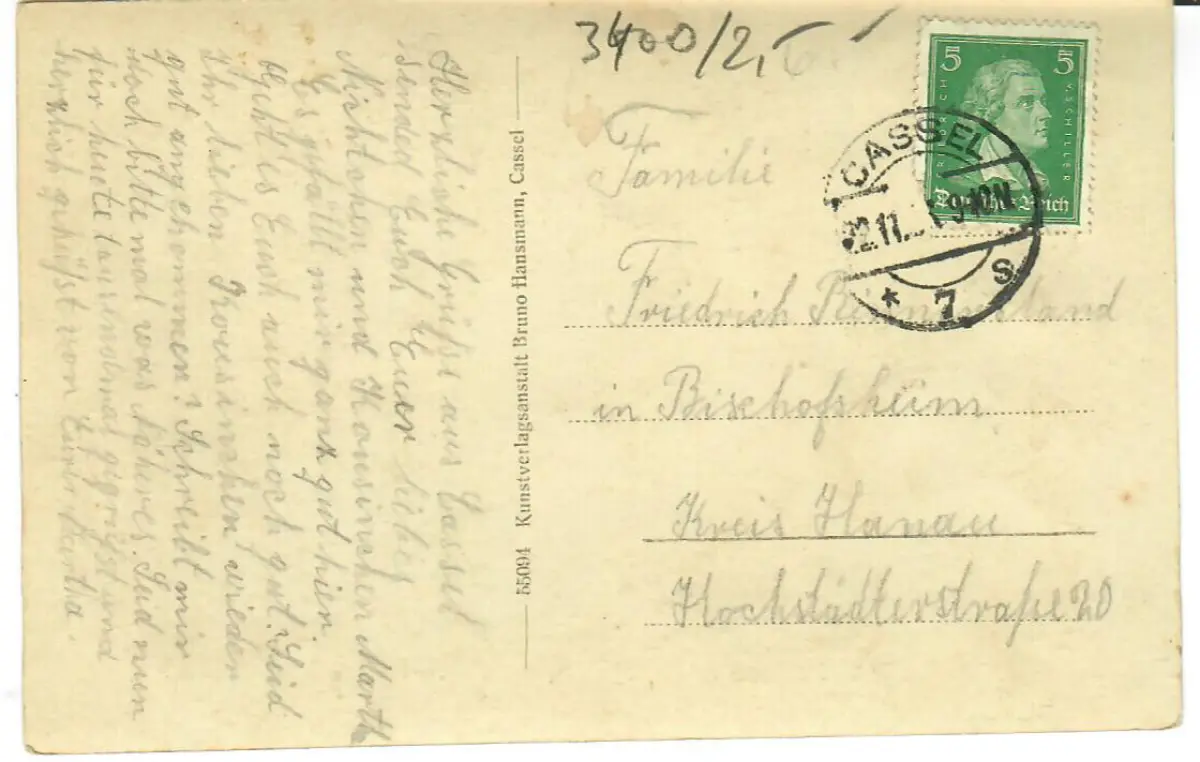 3400/2,-
5 5
FRIEDRICH V. SCHILLER
Deutsches Reich
CASSEL
22.11. 9-10N
* 7 s
Herzliche Grüße aus Cassel
sendet Euch Euer liebes
und Kousinchen Marth
Es gefällt mir ganz gut hier.
geht es Euch auch noch gut. Seid
Ihr lieben Kousinchen wieder
gut angekommen? Schreibt mir
doch bitte mal was näheres. Seid nun
für heute tausendmal gegrüßt und
herzlich geküßt von Eurer Martha.
55094 Kunstverlagsanstalt Bruno Hansmann, Cassel
Familie
Friedrich
in Bischofsheim
Kreis Hanau
Hochstädterstraße 20